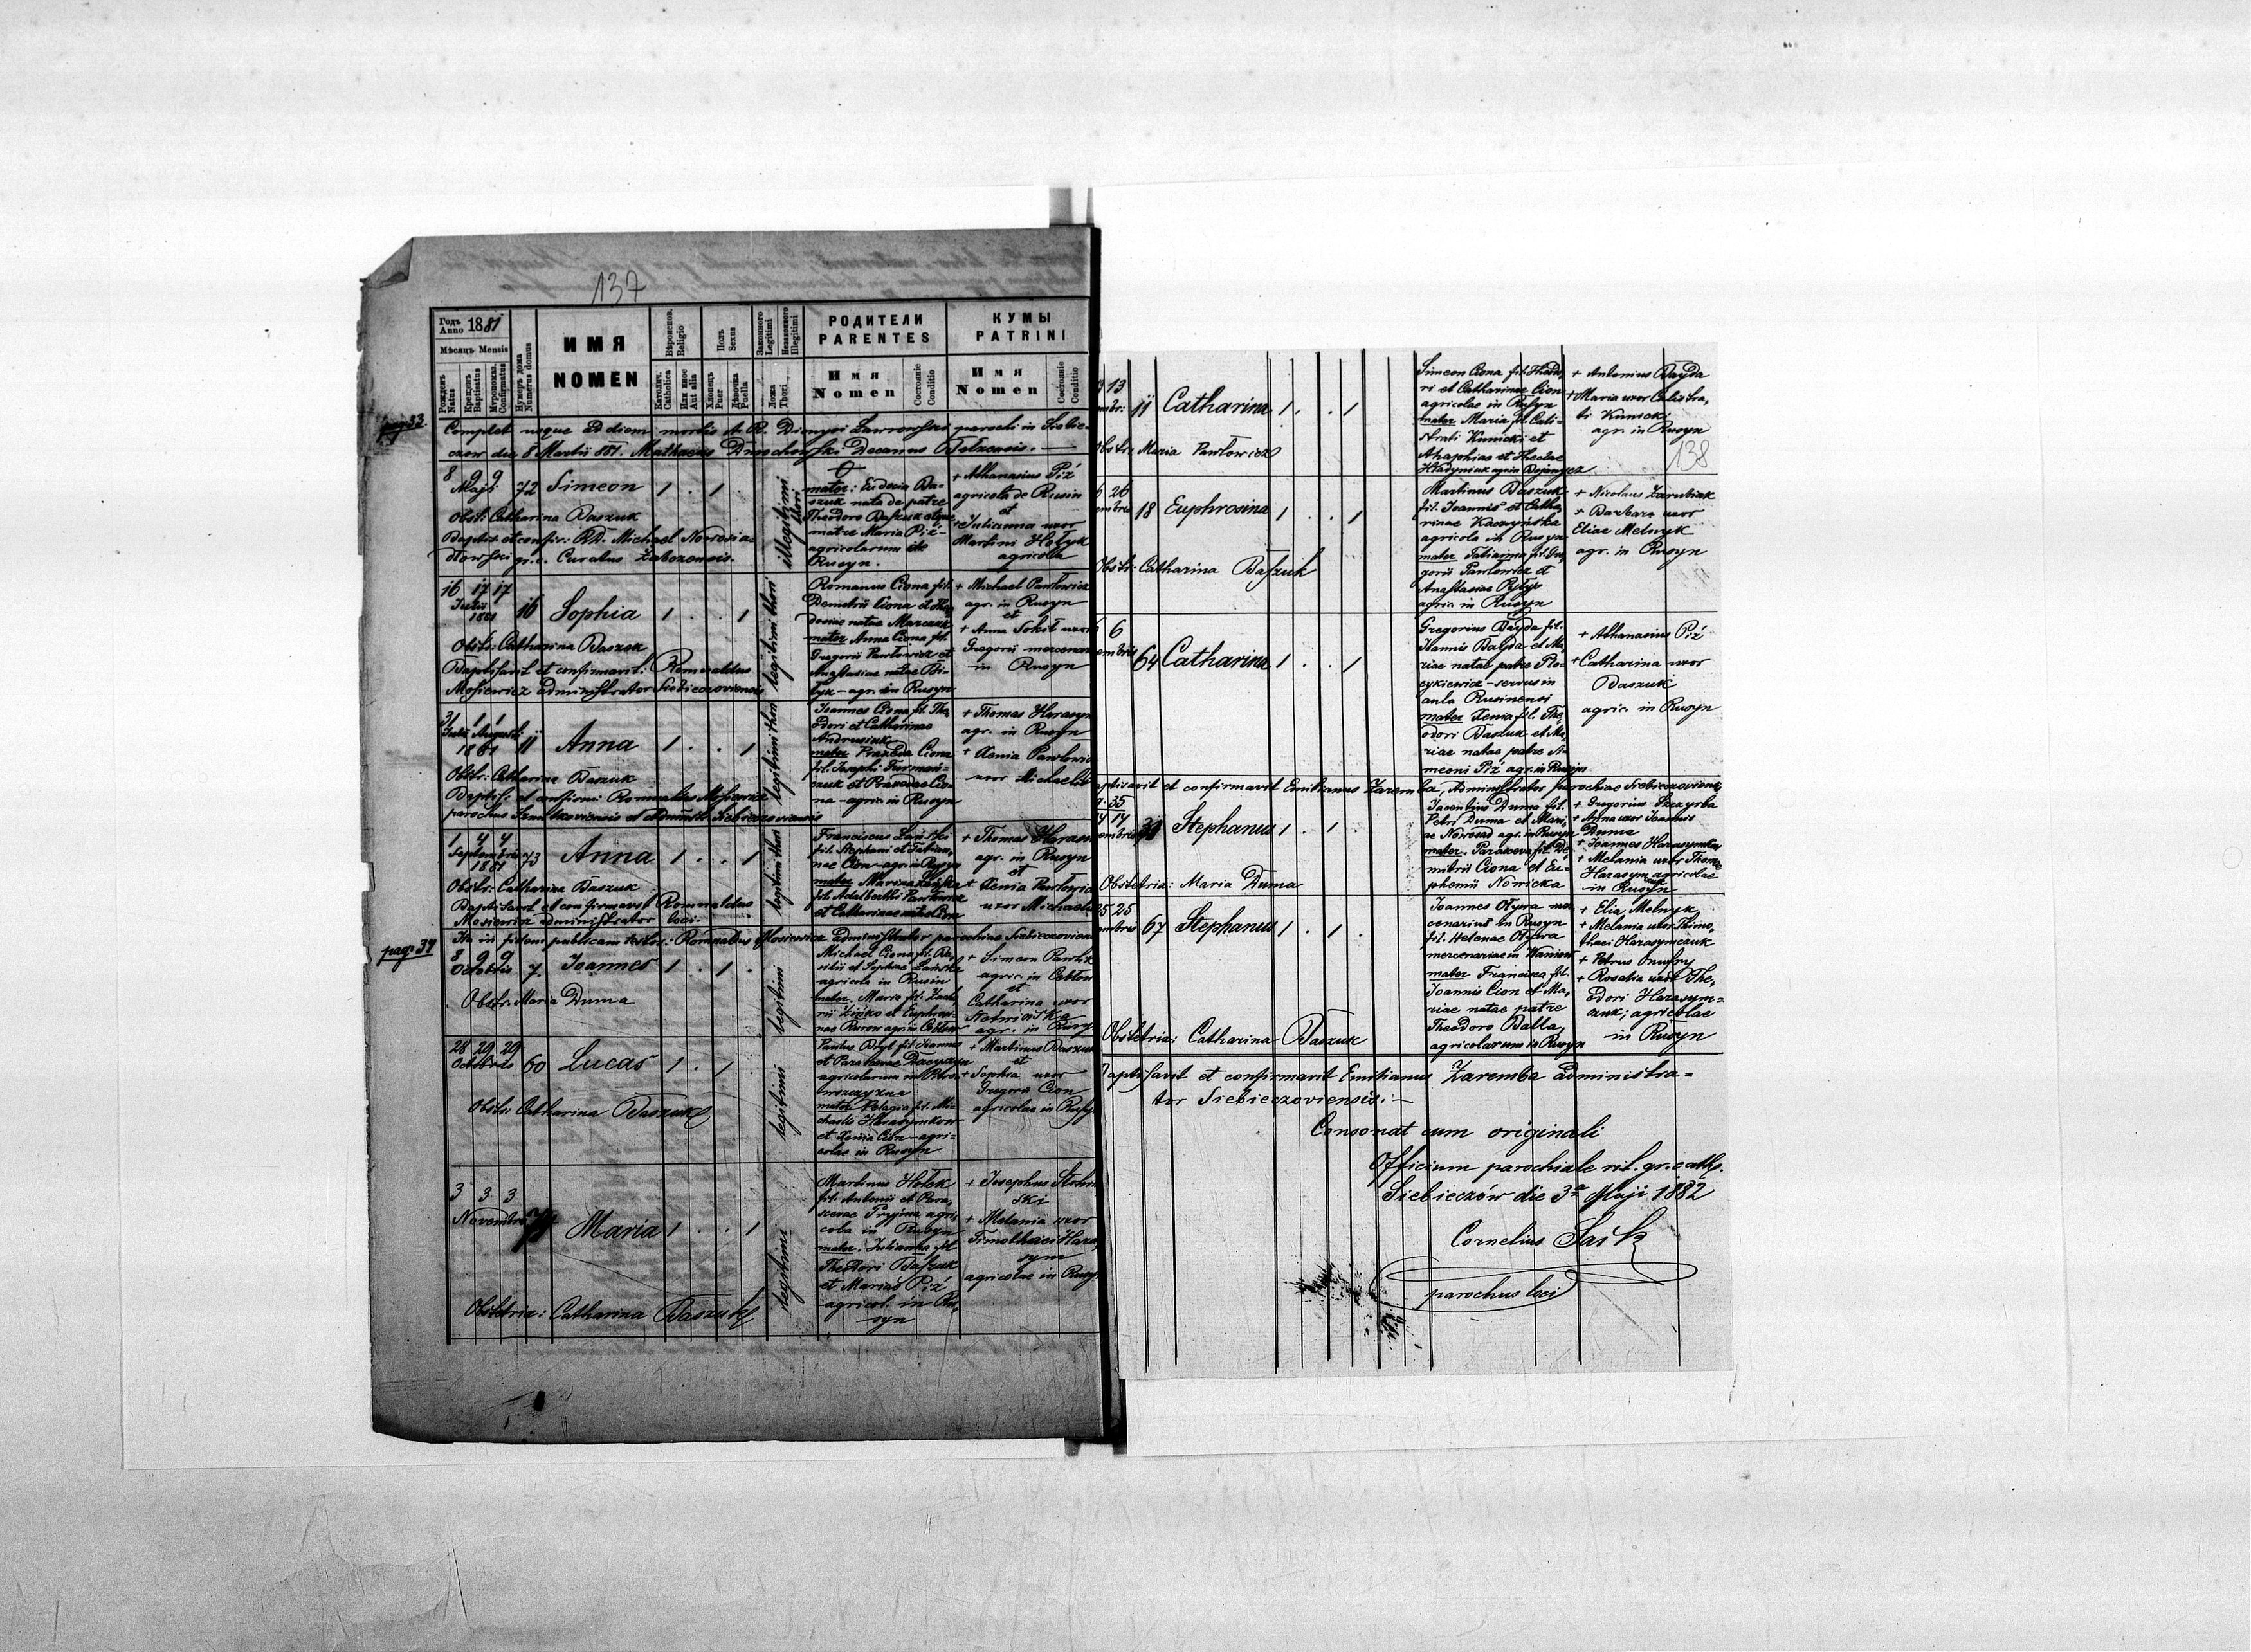 137
Годъ Anno 1881
Мѣсяцъ Mensis
Рожденъ Natus
Крещенъ Baptisatus
Мѵропомаз. Confirmatus
Нумеръ дома Numerus domus
ИМЯ
NOMEN
Вѣроиспов. Religio
Католич. Catholica
Или иное Aut alia
Полъ Sexus
Хлопецъ Puer
Дѣвочка Puella
Законного Legitimi
Незаконного Illegitimi
Ложа Thori
РОДИТЕЛИ
PARENTES
Имя Nomen
Состояніе Conditio
КУМЫ
PATRINI
Имя Nomen
Состояніе Conditio
usque ad diem mortis A. R. Dionysi Ławrowski parochi in Siebie-
czów die 8 Martii 881. Decanus Belzensis.
8 9 9
Maji 72 Simeon 1 . 1
illegitimi thori
mater: Eudocia Ba-
szuk nata de patre
Theodoro Baszuk et
matre Maria Piż
agricolarum de
Rusyn.
+ Athanasius Piż
agricola de Rusin
et
+ Julianna uxor
Martini Hołyk
agricola
Obst: Catharina Baszuk
Baptis. et confir: RR. Michael Nowosia-
dłowski gr. c. Curatus Zabczensis.
16 17 17
Julii
1881 16 Sophia 1 . . 1
legitimi thori
Romanus Ciona fil.
Demetrii Ciona et Theo-
dosiae natae Marczuk
mater Anna Ciona fil.
Gregorii Pawłowicz et
Anastasiae natae Bi-
łyk - agr. in Rusyn
+ Michael Pawłowicz
agr. in Rusyn
et
+ Anna Sokił uxor
Gregorii mercenar
in Rusyn
Obstr: Catharina Baszuk
Baptisavit et confirmavit: Romualdus
Mosiewicz administrator Siebieczoviensis
31 1 1
Julii Augusti
1881 11 Anna 1 . . 1
legitimi thori
Joannes Ciona fil. The-
odori et Catharinae
Andrusiuk
mater Praxeda Ciona
fil. Josephi Furmań-
czuk et Praxedae Cio-
na - agric. in Rusyn
+ Thomas Harasym
agr. in Rusyn
+ Xenia Pawłowic
uxor Michaelis
Obstr: Catharina Baszuk
Baptis: et confirm: Romualdus Mosiewicz
parochus et administr. Siebieczoviensis
1 4 4
Septembris
1881 73 Anna 1 . . 1
legitimi thori
Franciscus Łański
fil. Stephani et Tatian-
nae Cion - agr. in Rusyn
mater Marina Łańska
fil. Adalberthi Pawłowicz
et Catharinae natae Cion
+ Thomas Harasym
agr. in Rusyn
et
+ Xenia Pawłowic
uxor Michaelis
Obstr: Catharina Baszuk
Baptisavit et confirmavit Romualdus
Mosiewicz administrator loci.
pag: 34
Ita in fidem publicam testor. Romualdus Mosiewicz administrator parochiae Siebieczovien
8 9 9
Octobris 7. Joannes 1 . 1 .
legitimi
Michael Ciona fil. Ba-
silii et Sophiae Łańska
agricola in Rusin
mater. Maria fil. Zach
rii Zińko et Euphrosi-
nae Baron agric. in Cebłow
+ Simeon Pawlik
agric. in Cebłow
et
Catharina uxor
agr. in Rusy
Obstr. Maria Duma
28 29 29
Octobris 60 Lucas 1 . 1
legitimi
Paulus fil. Joannis
et Parascevae
agricolarum in
mater Pelagia fil. Mi-
chaelis Harasymkow
et Xenia Cion - agri-
colae in Rusyn
+ Martinus Baszuk
et
+ Sophia uxor
Gregorii Cion
agricolae in Rusy
Obstr: Catharina Baszuk
3 3 3
Novembris 71 Maria 1 . . 1
legitimi
Martinus Hołek
fil. Antonii et Para-
scevae Pryjma agri-
cola in Rusyn
mater. Julianna fil.
Theodori Baszuk
et Mariae Piż
agricol. in Ru-
syn
+ Josephus
ski
+ Melania uxor
Timothaei Hara
sym
agricolae in Rusy
Obstetrix: Catharina Baszuk
13
11 Catharina 1 . . 1
Simeon Ciona fil. Theodo-
ri et Catharinae Cion
agricolae in Rusyn
mater Maria fil. Cali-
strati Kunicki et
Ahaphiae et Theclae
+ Antonius Bayda
+ Maria uxor Calistra-
ti Kunicki
agr. in Rusyn
138
Obstr: Maria Pawłowicz
26
18 Euphrosina 1 . . 1
Martinus Baszuk
fil. Joannis et Catha-
rinae Kaszyńska
agricola in Rusyn
mater Tatianna fil. Gre-
gorii Pawłowicz et
Anastasiae Byłyk
agric. in Rusyn
+ Nicolaus Zarubiak
+ Barbara uxor
Eliae Melnyk
agr. in Rusyn
Obstr: Catharina Baszuk
6
64 Catharina 1 . . 1
Gregorius Bayda fil.
Joannis Bayda et Ma-
riae natae patre Plo-
cykiewicz - servus in
aula Rusinensi
mater Xenia fil. The-
odori Baszuk et Ma-
riae natae patre Si-
meoni Piż agr. in Rusyn
+ Athanasius Piż
+ Catharina uxor
Baszuk
agric. in Rusyn
aptisavit et confirmavit Emilianus Zaremba, Administrator parochiae Siebieczoviens
35
14
39 Stephanus 1 . 1
Jacentius Duma fil.
Petri Duma et Mari-
ae Nowosad agr. in Rusyn
mater. Paraceva fil. De-
mitrii Ciona et Eu-
phemii Nowicka
+ Gregorius Szczyrba
+ Anna uxor Joannis
Duma
+ Joannes Harasymków
+ Melania uxor Thomae
Harasym agricolae
in Rusyn
Obstetrix: Maria Duma
25 25
67 Stephanus 1 . 1 .
Joannes Otyna mer-
cenarius in Rusyn
fil. Helenae Otyna
mercenariae in Waniow
mater Francisca fil.
Joannis Cion et Ma-
riae natae patre
Theodoro Balla,
agricolarum in Rusyn
+ Elia Melnyk
+ Melania uxor Thimo-
thaei Harasymczuk
+ Petrus Onufry
+ Rosalia uxor The-
odori Harasym=
czuk; agricolae
in Rusyn
Obstetrix: Catharina Baszuk
aptisavit et confirmavit Emilianus Zaremba administra=
tor Siebieczoviensis. -
Consonat cum originali
Officium parochiale rit. gr. cath.
Siebieczów die 3a Maji 1882
Cornelius Saik
parochus loci